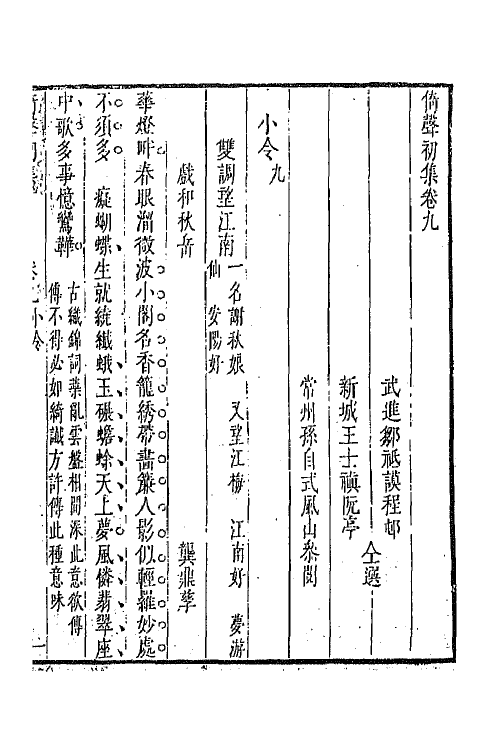 倚聲初集卷九
武進鄒祗謨程邨
仝選
新城王士禛阮亭
常州孫自式風山參閱
小令九
雙調望江南一名謝秋娘 又望江梅 江南好 夢游仙 安陽好
戲和秋岳 龔鼎孳
華燈畔春眼溜微波小閣名香籠綉帶畵簾人影似輕羅妙處
不須多 癡蝴蝶生就繞纖蛾玉碾蟾蜍天上夢風憐翡翠座
中歌多事憶鴛鞾
古織錦詞藥亂雲盤相間深此意欲傳
傳不得必如綺讖方許傳此種意味
卷九小令
一